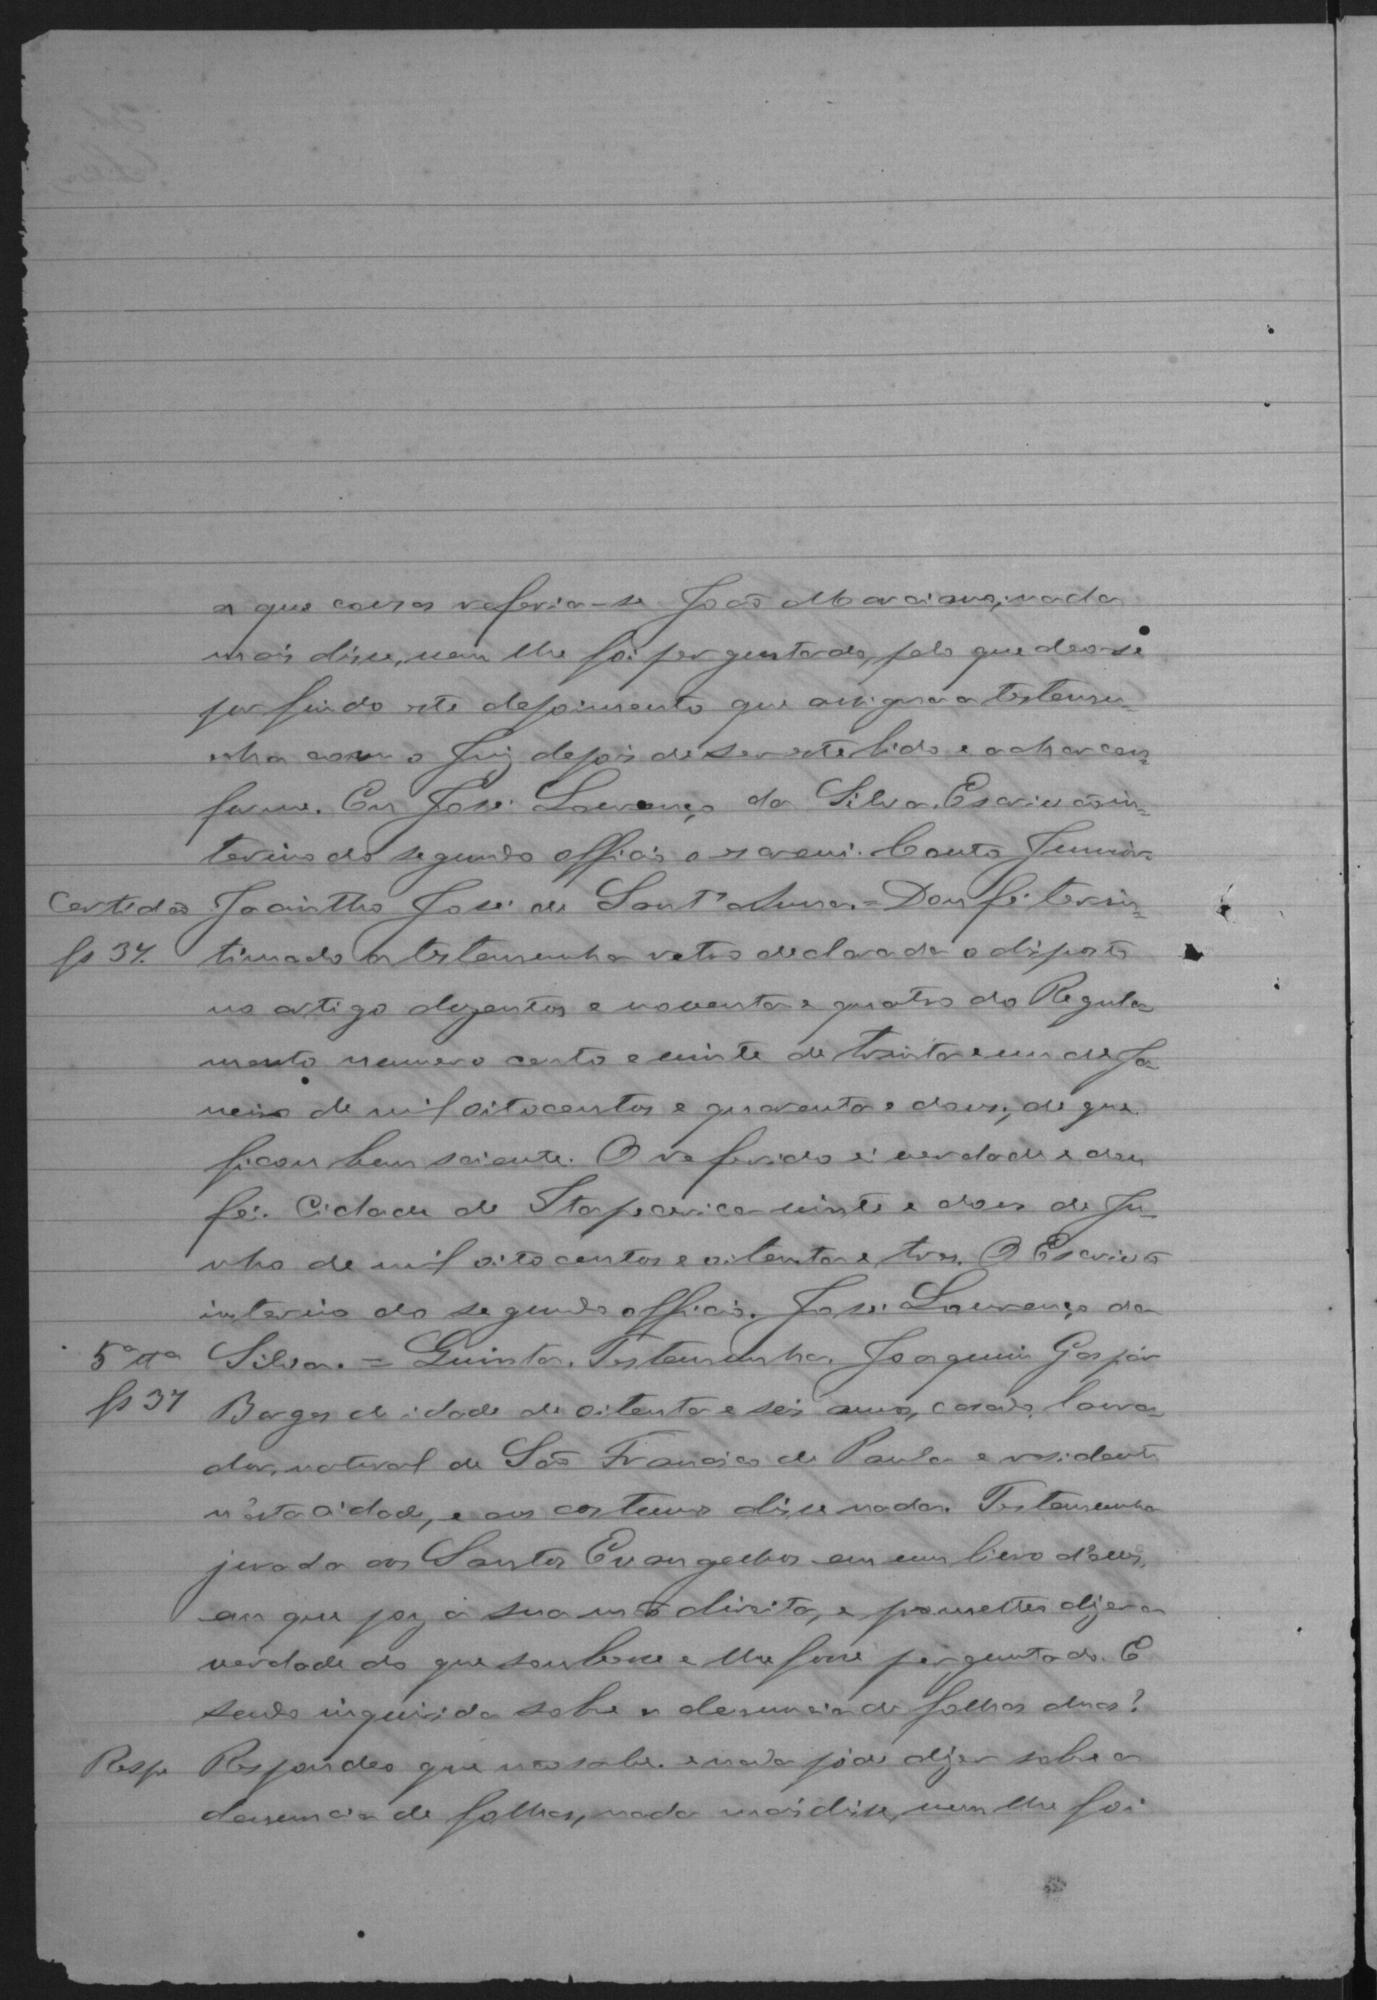 a que cousa referia-se João Marciano, nada
mais disse, nem lhe foi perguntado, pelo que deo-se
por findo este depoimento que assigna a testemu-
nha com o Juiz depois de ser este lido e achar con-
forme. Eu José Lourenço da Silva, Escrivão in-
terino do segundo officio o escrevi. Couto Junior.
Certidão Jacintho José de Sant'Anna. = Dou fé ter in-
fs 37. timado a testemunha retro declarada o disposto
no artigo duzentos e noventa e quatro do Regula-
mento numero cento e vinte de trinta e um de Ja-
neiro de mil oitocentos e quarenta e dous, de que
ficou bem sciente. O referido é verdade e dou
fé. Cidade de Itapecerica vinte e dous de Ju-
nho de mil oitocentos e oitenta e tres. O Escrivão
interino do segundo officio, José Lourenço da
5ª ttª Silva. = Quinta. Testemunha Joaquim Gaspar
fs 37 Borges de idade de oitenta e seis annos, casado, lavra-
dor, natural de São Francisco de Paula e residente
n'esta cidade, e aos costumes disse nada. Testemunha
jurada aos Santos Evangelhos em um livro d'elles,
em que poz a sua mão direita, e prometteu dizer a
verdade do que soubesse e lhe fosse perguntado. E
sendo inquirida sobre a denuncia de folhas duas?
Resp Respondeo que não sabe e nada póde dizer sobre a
denuncia de folhas, nada mais disse, nem lhe foi